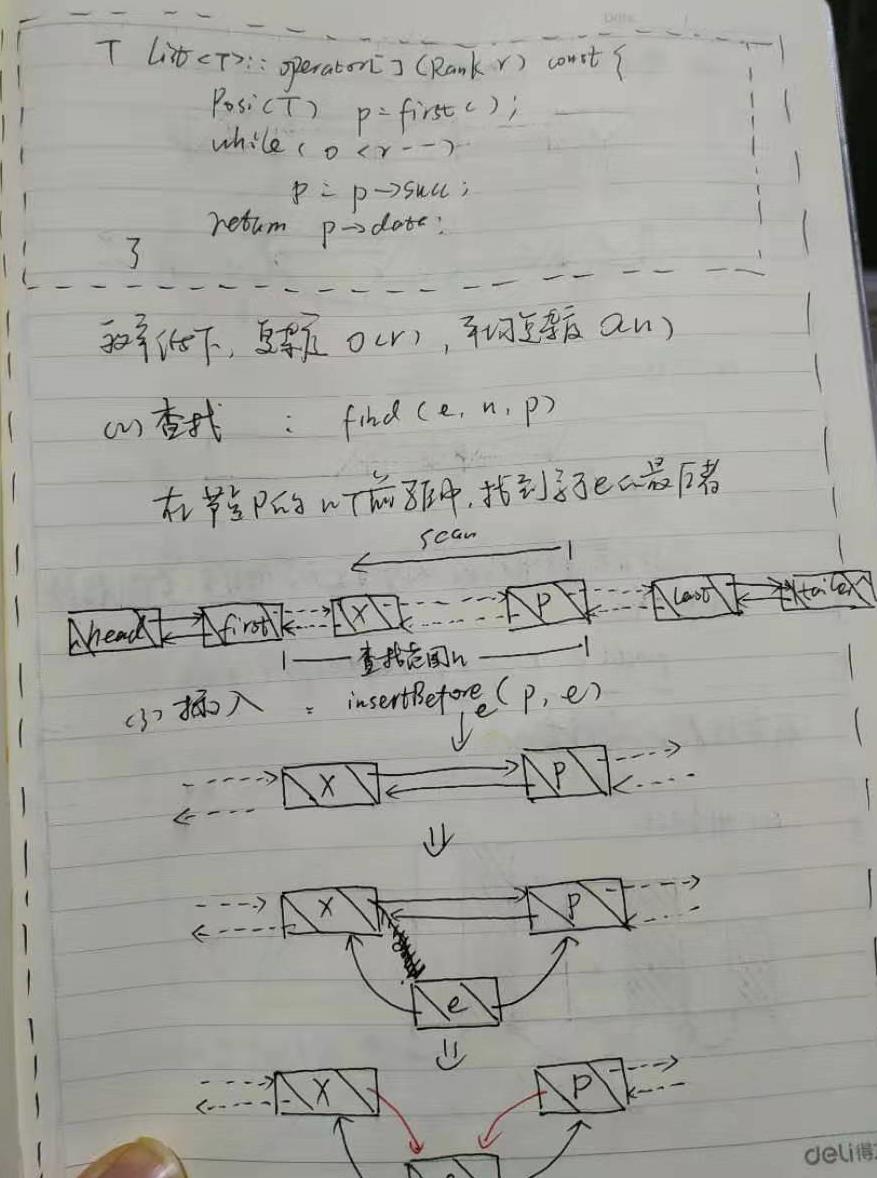 T List<T>::operator[](Rank r) const {
Posi(T) p=first();
while(0<r--)
p = p->succ;
return p->data;
}
效率低下,复杂度 O(r),平均复杂度 O(n)
(2) 查找 : find(e,n,p)
在节点P的n个前驱中,找到等于e的最后者
scan
head first X P last tailer
查找范围n
(3) 插入 : insertBefore(p,e)
e
X P
X P
e
X P
e
deli得